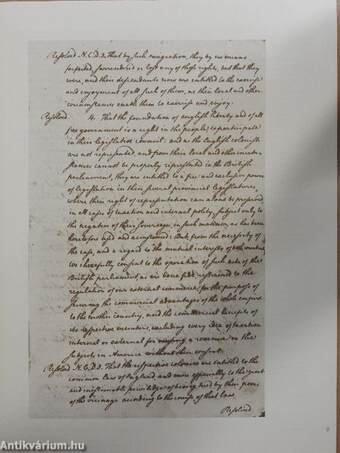 Resolved N.C.D. 3. That by such emigration, they by no means
forfeited, surrendered or lost any of those rights, but that they
were, and their descendants now are entitled to the exercise
and enjoyment of all such of them, as their local and other
circumstances enable them to exercise and enjoy.
Resolved 4. That the foundation of english liberty and of all
free government is a right in the people to participate
in their legislative council: and as the English colonists
are not represented, and from their local and other circum-
stances cannot be properly represented in the British
parliament, they are entitled to a free and exclusive power
of legislation in their several provincial legislatures,
where their right of representation can alone be preserved
in all cases of taxation and internal polity, subject only to
the negative of their sovereign, in such manner as has been
heretofore used and accustomed: But from the necessity of
the case, and a regard to the mutual interests of both countries
we cheerfully consent to the operation of such acts of the
British parliament, as are bona fide restrained to the
regulation of our external commerce, for the purpose of
securing the commercial advantages of the whole empire
to the mother country, and the commercial benefits of
its respective members, excluding every idea of taxation
internal or external for raising a revenue on the
subjects in America without their consent.
Resolved N.C.D. 5. That the respective colonies are entitled to the
common law of England, and more especially to the great
and inestimable privilege of being tried by their peers
of the vicinage according to the course of that law.
Resolved
Antikvárium.hu